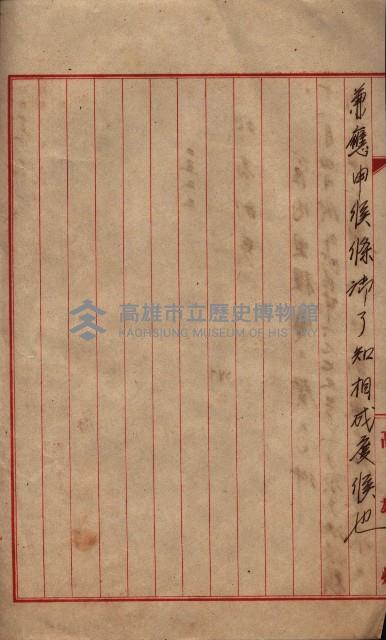 兼應申候條御了知相成度候也
高雄市立歷史博物館
KAOHSIUNG MUSEUM OF HISTORY
高
雄